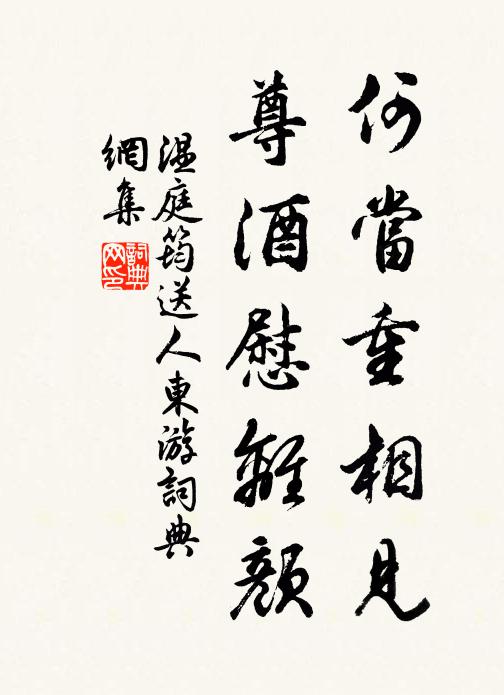 何當重相見
尊酒慰離顏
温庭筠送人東游詞典
網集
詞典
网印